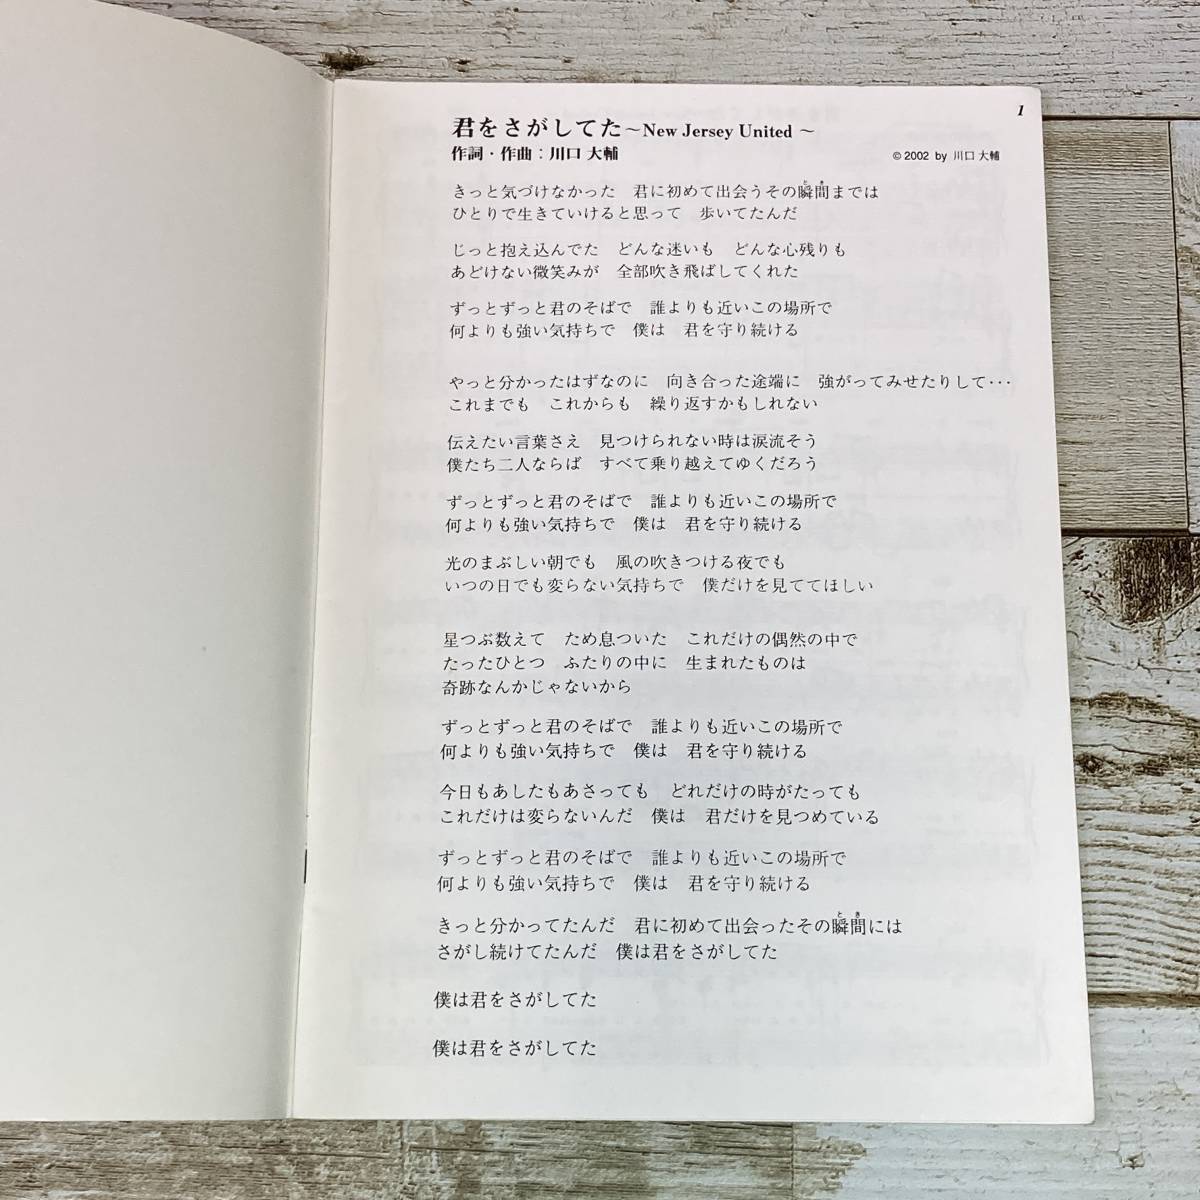 1
君をさがしてた～New Jersey United～
作詞・作曲：川口 大輔
© 2002 by 川口 大輔
きっと気づけなかった　君に初めて出会うその瞬間までは
とき
ひとりで生きていけると思って　歩いてたんだ
じっと抱え込んでた　どんな迷いも　どんな心残りも
あどけない微笑みが　全部吹き飛ばしてくれた
ずっとずっと君のそばで　誰よりも近いこの場所で
何よりも強い気持ちで　僕は　君を守り続ける
やっと分かったはずなのに　向き合った途端に　強がってみせたりして･･･
これまでも　これからも　繰り返すかもしれない
伝えたい言葉さえ　見つけられない時は涙流そう
僕たち二人ならば　すべて乗り越えてゆくだろう
ずっとずっと君のそばで　誰よりも近いこの場所で
何よりも強い気持ちで　僕は　君を守り続ける
光のまぶしい朝でも　風の吹きつける夜でも
いつの日でも変らない気持ちで　僕だけを見ててほしい
星つぶ数えて　ため息ついた　これだけの偶然の中で
たったひとつ　ふたりの中に　生まれたものは
奇跡なんかじゃないから
ずっとずっと君のそばで　誰よりも近いこの場所で
何よりも強い気持ちで　僕は　君を守り続ける
今日もあしたもあさっても　どれだけの時がたっても
これだけは変らないんだ　僕は　君だけを見つめている
ずっとずっと君のそばで　誰よりも近いこの場所で
何よりも強い気持ちで　僕は　君を守り続ける
きっと分かってたんだ　君に初めて出会ったその瞬間には
とき
さがし続けてたんだ　僕は君をさがしてた
僕は君をさがしてた
僕は君をさがしてた